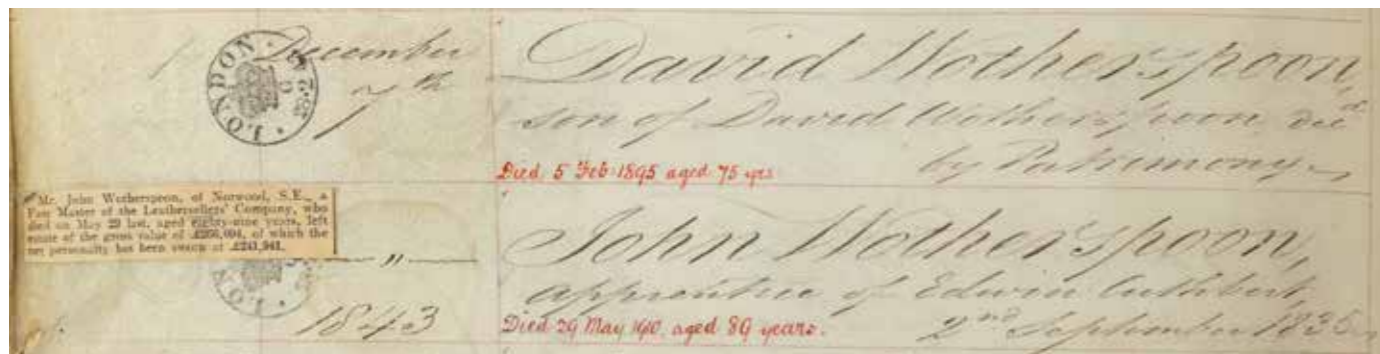 December
7th
LONDON
David Wotherspoon,
son of David Wotherspoon, decd
by Patrimony
Died 5 Feb 1895 aged 75 yrs
Mr. John Wotherspoon, of Norwood, S.E., a
Past Master of the Leathersellers' Company, who
died on May 29 last, aged eighty-nine years, left
estate of the gross value of of which the
net personalty has been sworn at £241,941.
— " —
1843
John Wotherspoon,
apprentice of Edwin Cuthbert,
2nd September 1835
Died 29 May 1910, aged 89 years.